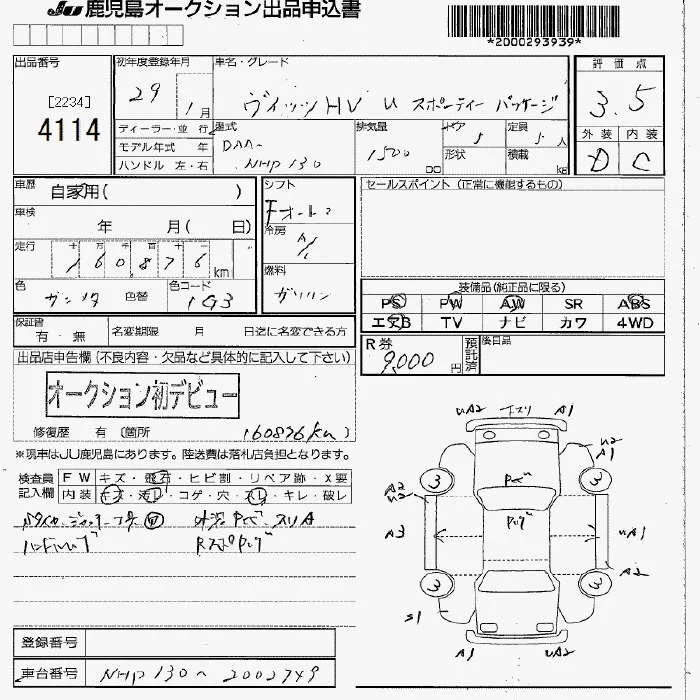 JU 鹿児島オークション出品申込書
*2000293939*
出品番号
[2234]
4114
初年度登録年月
29 1月
ディーラー・並行
モデル年式 年
ハンドル 左・右
車名・グレード
ヴィッツHV U スポーティー パッケージ
型式
DAA-
NHP130
排気量
1500
CC
ドア 5
形状
定員 5人
積載 kg
評価点
3.5
外装 内装
D C
車歴
自家用( )
車検
年 月( 日)
走行
十 万 千 百 十
160,876 km
色
色替
色コード
1G3
シフト
冷房
A/C
燃料
ガソリン
セールスポイント(正常に機能するもの)
装備品(純正品に限る)
PS PW AW SR ABS
エアB TV ナビ カワ 4WD
保証書
有・無
名変期限 月 日迄に名変できる方
R券
9,000円
預託済
後日品
出品店申告欄(不良内容・欠品など具体的に記入して下さい)
オークション初デビュー
修復歴 有 〔箇所 160876km〕
※現車はJU鹿児島にあります。陸送費は落札店負担となります。
検査員記入欄
FW キズ・飛石・ヒビ割・リペア跡・X要
内装 キズ・汚レ・コゲ・穴・スレ・キレ・破レ
登録番号
車台番号
NHP130-2002749
UA2 キズリ A1
U2
A1
3 3
A2
U2
A3
UA1
A2
3 3
S1
A1 UA2